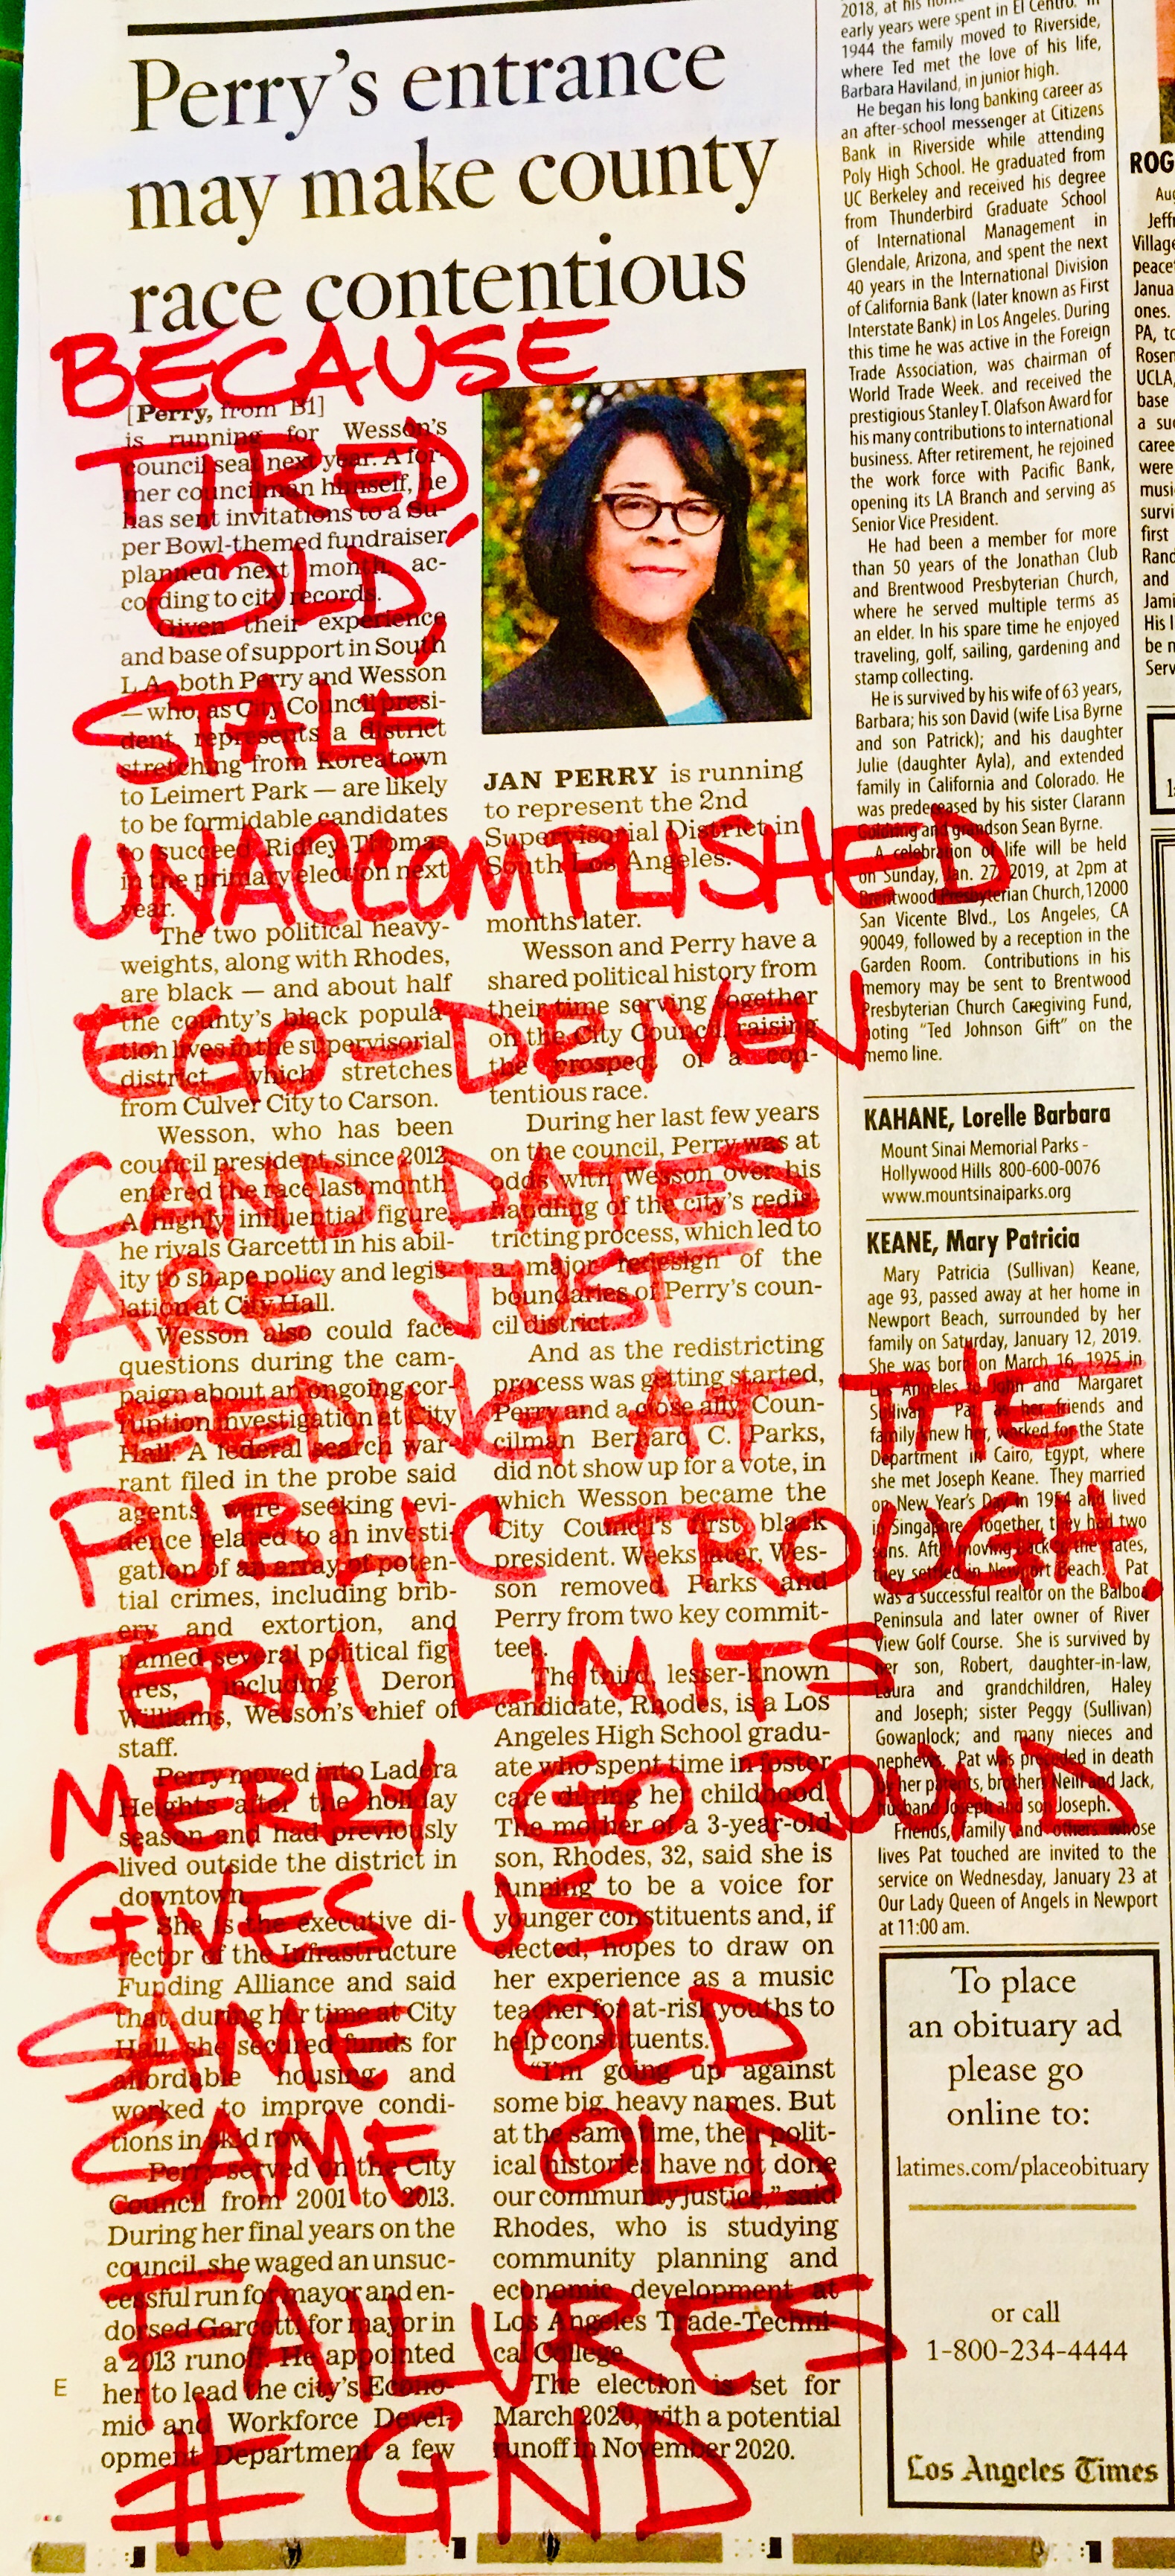 Perry's entrance
may make county
race contentious
BECAUSE
TIRED,
OLD,
STALE
UNACCOMPLISHED
EGO-DRIVEN
CANDIDATES
ARE JUST
FEEDING AT THE
PUBLIC TROUGH.
TERM LIMITS
MERRY GO ROUND
GIVES US
SAME OLD
SAME OLD
FAILURES
# GND
[Perry, from B1]
is running for Wesson's
council seat next year. A for-
mer councilman himself, he
has sent invitations to a Su-
per Bowl-themed fundraiser
planned next month, ac-
cording to city records.
Given their experience
and base of support in South
L.A., both Perry and Wesson
— who, as City Council presi-
dent, represents a district
stretching from Koreatown
to Leimert Park — are likely
to be formidable candidates
to succeed Ridley-Thomas
in the primary election next
year.
The two political heavy-
weights, along with Rhodes,
are black — and about half
the county's black popula-
tion lives in the supervisorial
district, which stretches
from Culver City to Carson.
Wesson, who has been
council president since 2012,
entered the race last month.
A highly influential figure,
he rivals Garcetti in his abil-
ity to shape policy and legis-
lation at City Hall.
Wesson also could face
questions during the cam-
paign about an ongoing cor-
ruption investigation at City
Hall. A federal search war-
rant filed in the probe said
agents were seeking evi-
dence related to an investi-
gation of an array of poten-
tial crimes, including brib-
ery and extortion, and
named several political fig-
ures, including Deron
Williams, Wesson's chief of
staff.
Perry moved into Ladera
Heights after the holiday
season and had previously
lived outside the district in
downtown.
She is the executive di-
rector of the Infrastructure
Funding Alliance and said
that, during her time at City
Hall, she secured funds for
affordable housing and
worked to improve condi-
tions in skid row.
Perry served on the City
Council from 2001 to 2013.
During her final years on the
council, she waged an unsuc-
cessful run for mayor and en-
dorsed Garcetti for mayor in
a 2013 runoff. He appointed
her to lead the city's Econo-
mic and Workforce Devel-
opment Department a few
E
JAN PERRY is running
to represent the 2nd
Supervisorial District in
South Los Angeles.
months later.
Wesson and Perry have a
shared political history from
their time serving together
on the City Council, raising
the prospect of a con-
tentious race.
During her last few years
on the council, Perry was at
odds with Wesson over his
handling of the city's redis-
tricting process, which led to
a major redesign of the
boundaries of Perry's coun-
cil district.
And as the redistricting
process was getting started,
Perry and a close ally, Coun-
cilman Bernard C. Parks,
did not show up for a vote, in
which Wesson became the
City Council's first black
president. Weeks later, Wes-
son removed Parks and
Perry from two key commit-
tees.
The third, lesser-known
candidate, Rhodes, is a Los
Angeles High School gradu-
ate who spent time in foster
care during her childhood.
The mother of a 3-year-old
son, Rhodes, 32, said she is
running to be a voice for
younger constituents and, if
elected, hopes to draw on
her experience as a music
teacher for at-risk youths to
help constituents.
"I'm going up against
some big, heavy names. But
at the same time, their polit-
ical histories have not done
our community justice," said
Rhodes, who is studying
community planning and
economic development at
Los Angeles Trade-Techni-
cal College.
The election is set for
March 2020, with a potential
runoff in November 2020.
2018, at his
early years were spent in El Centro. In
1944 the family moved to Riverside,
where Ted met the love of his life,
Barbara Haviland, in junior high.
He began his long banking career as
an after-school messenger at Citizens
Bank in Riverside while attending
Poly High School. He graduated from
UC Berkeley and received his degree
from Thunderbird Graduate School
of International Management in
Glendale, Arizona, and spent the next
40 years in the International Division
of California Bank (later known as First
Interstate Bank) in Los Angeles. During
this time he was active in the Foreign
Trade Association, was chairman of
World Trade Week. and received the
prestigious Stanley T. Olafson Award for
his many contributions to international
business. After retirement, he rejoined
the work force with Pacific Bank,
opening its LA Branch and serving as
Senior Vice President.
He had been a member for more
than 50 years of the Jonathan Club
and Brentwood Presbyterian Church,
where he served multiple terms as
an elder. In his spare time he enjoyed
traveling, golf, sailing, gardening and
stamp collecting.
He is survived by his wife of 63 years,
Barbara; his son David (wife Lisa Byrne
and son Patrick); and his daughter
Julie (daughter Ayla), and extended
family in California and Colorado. He
was predeceased by his sister Clarann
Goldring and grandson Sean Byrne.
A celebration of life will be held
on Sunday, Jan. 27, 2019, at 2pm at
Brentwood Presbyterian Church, 12000
San Vicente Blvd., Los Angeles, CA
90049, followed by a reception in the
Garden Room. Contributions in his
memory may be sent to Brentwood
Presbyterian Church Caregiving Fund,
noting "Ted Johnson Gift" on the
memo line.
KAHANE, Lorelle Barbara
Mount Sinai Memorial Parks -
Hollywood Hills 800-600-0076
www.mountsinaiparks.org
KEANE, Mary Patricia
Mary Patricia (Sullivan) Keane,
age 93, passed away at her home in
Newport Beach, surrounded by her
family on Saturday, January 12, 2019.
She was born on March 16, 1925 in
Los Angeles to John and Margaret
Sullivan. Pat, as her friends and
family knew her, worked for the State
Department in Cairo, Egypt, where
she met Joseph Keane. They married
on New Year's Day in 1954 and lived
in Singapore. Together, they had two
sons. After moving back to the states,
they settled in Newport Beach. Pat
was a successful realtor on the Balboa
Peninsula and later owner of River
View Golf Course. She is survived by
her son, Robert, daughter-in-law,
Laura and grandchildren, Haley
and Joseph; sister Peggy (Sullivan)
Gowanlock; and many nieces and
nephews. Pat was preceded in death
by her parents, brothers Neill and Jack,
husband Joseph and son Joseph.
Friends, family and others whose
lives Pat touched are invited to the
service on Wednesday, January 23 at
Our Lady Queen of Angels in Newport
at 11:00 am.
To place
an obituary ad
please go
online to:
latimes.com/placeobituary
or call
1-800-234-4444
Los Angeles Times
ROG
Aug
Jeff
Village
peace
Janua
ones.
PA, to
Rosen
UCLA,
base
a su
caree
were
musi
survi
first
Rand
and
Jami
His l
be n
Serv